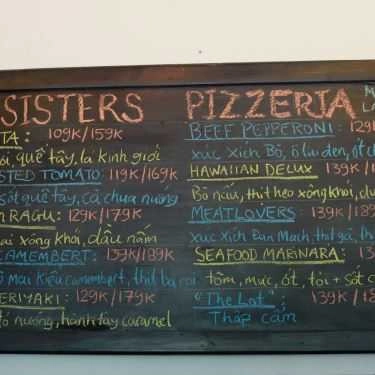 SISTERS PIZZERIA
TA: 109K/159K
quế tây, lá kinh giới
STED TOMATO: 119K/169K
sốt quế tây, cà chua nướng
RAGU: 129K/179K
xông khói, dầu nấm
CAMEMBERT: 139K/189K
Kiểu camembert, thịt ba rọi
ERIYAKI: 129K/179K
nướng, hành tây caramel
BEEF PEPPERONI: 129
xúc xích Bò, ô liu đen, ớt
HAWAIIAN DELUX 139K
Bò nấu, thịt heo xông khói,
MEATLOVERS: 139K/189
xúc xích Đan Mạch, thịt gà,
SEAFOOD MARINARA: 13
tôm, mực, ớt, tỏi + sốt
"The Lot": 139K/18
Thập cẩm